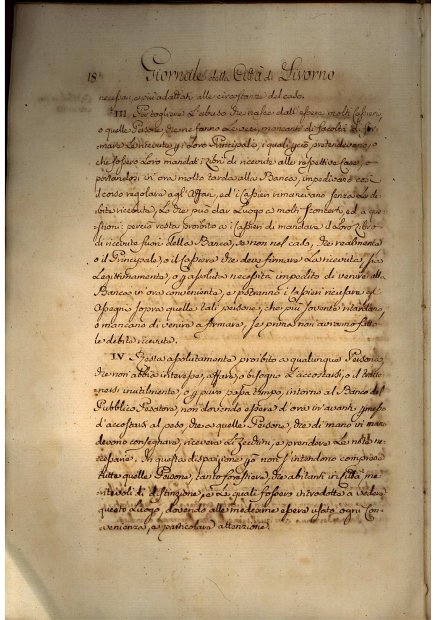 18
Giornale della Città di Livorno
necessari, e più adattati alle circostanze del caso.
III. Per togliere l'abuso che nasce dall'essere molti Cassieri,
o quelle Persone, che ne fanno le veci, mancanti di facoltà di fir-
mare le ricevute p i Loro Principali, i quali p ciò pretendevano, o
che fossero Loro mandati i Libri di ricevute alle respettive Case, o
portandosi in ora molto tarda alla Banca, impedivano così
il corso regolare agl'Affari, ed i Cassieri rimanevano senza le de-
bite ricevute, Lo che può dar Luogo a molti sconcerti, ed a que-
stioni: perciò resta proibito a i Cassieri di mandare il Loro Libro
di ricevute fuori della Banca, se non nel caso, che realmente
o il Principale, o il Cassiere che deve firmare la ricevuta, sia
Legittimamente, o p assoluta necessità impedito di venire alla
Banca in ora conveniente, e potranno i Cassieri ricusare gl'
Assegni sopra quelle tali persone, che più sovente ritardano,
o mancano di venire a firmare, se prima non avranno fatto
le debite ricevute.
IV. Resta assolutamente proibito a qualunque Persona,
che non abbia interesse, affare, o bisogno d'accostarsi, o il tratte-
nersi inutilmente, o p puro passa tempo, intorno al Banco del
Pubblico Pesatore, non dovendo essere d'ora in avanti permesso
d'accostarsi al peso, che a quelle Persone, che di mano in mano
devono consegnare, ricevere i Zecchini, e prendere le note ne-
cessarie. In questa disposizione p non s'intendono comprese
tutte quelle Persone, tanto forestiere, che abitanti in Città me-
ritevoli di distinzione, e le quali fossero introdotte a vedere
questo Luogo, dovendo alle medesime essere usata ogni Con-
venienza, e particolare attenzione.